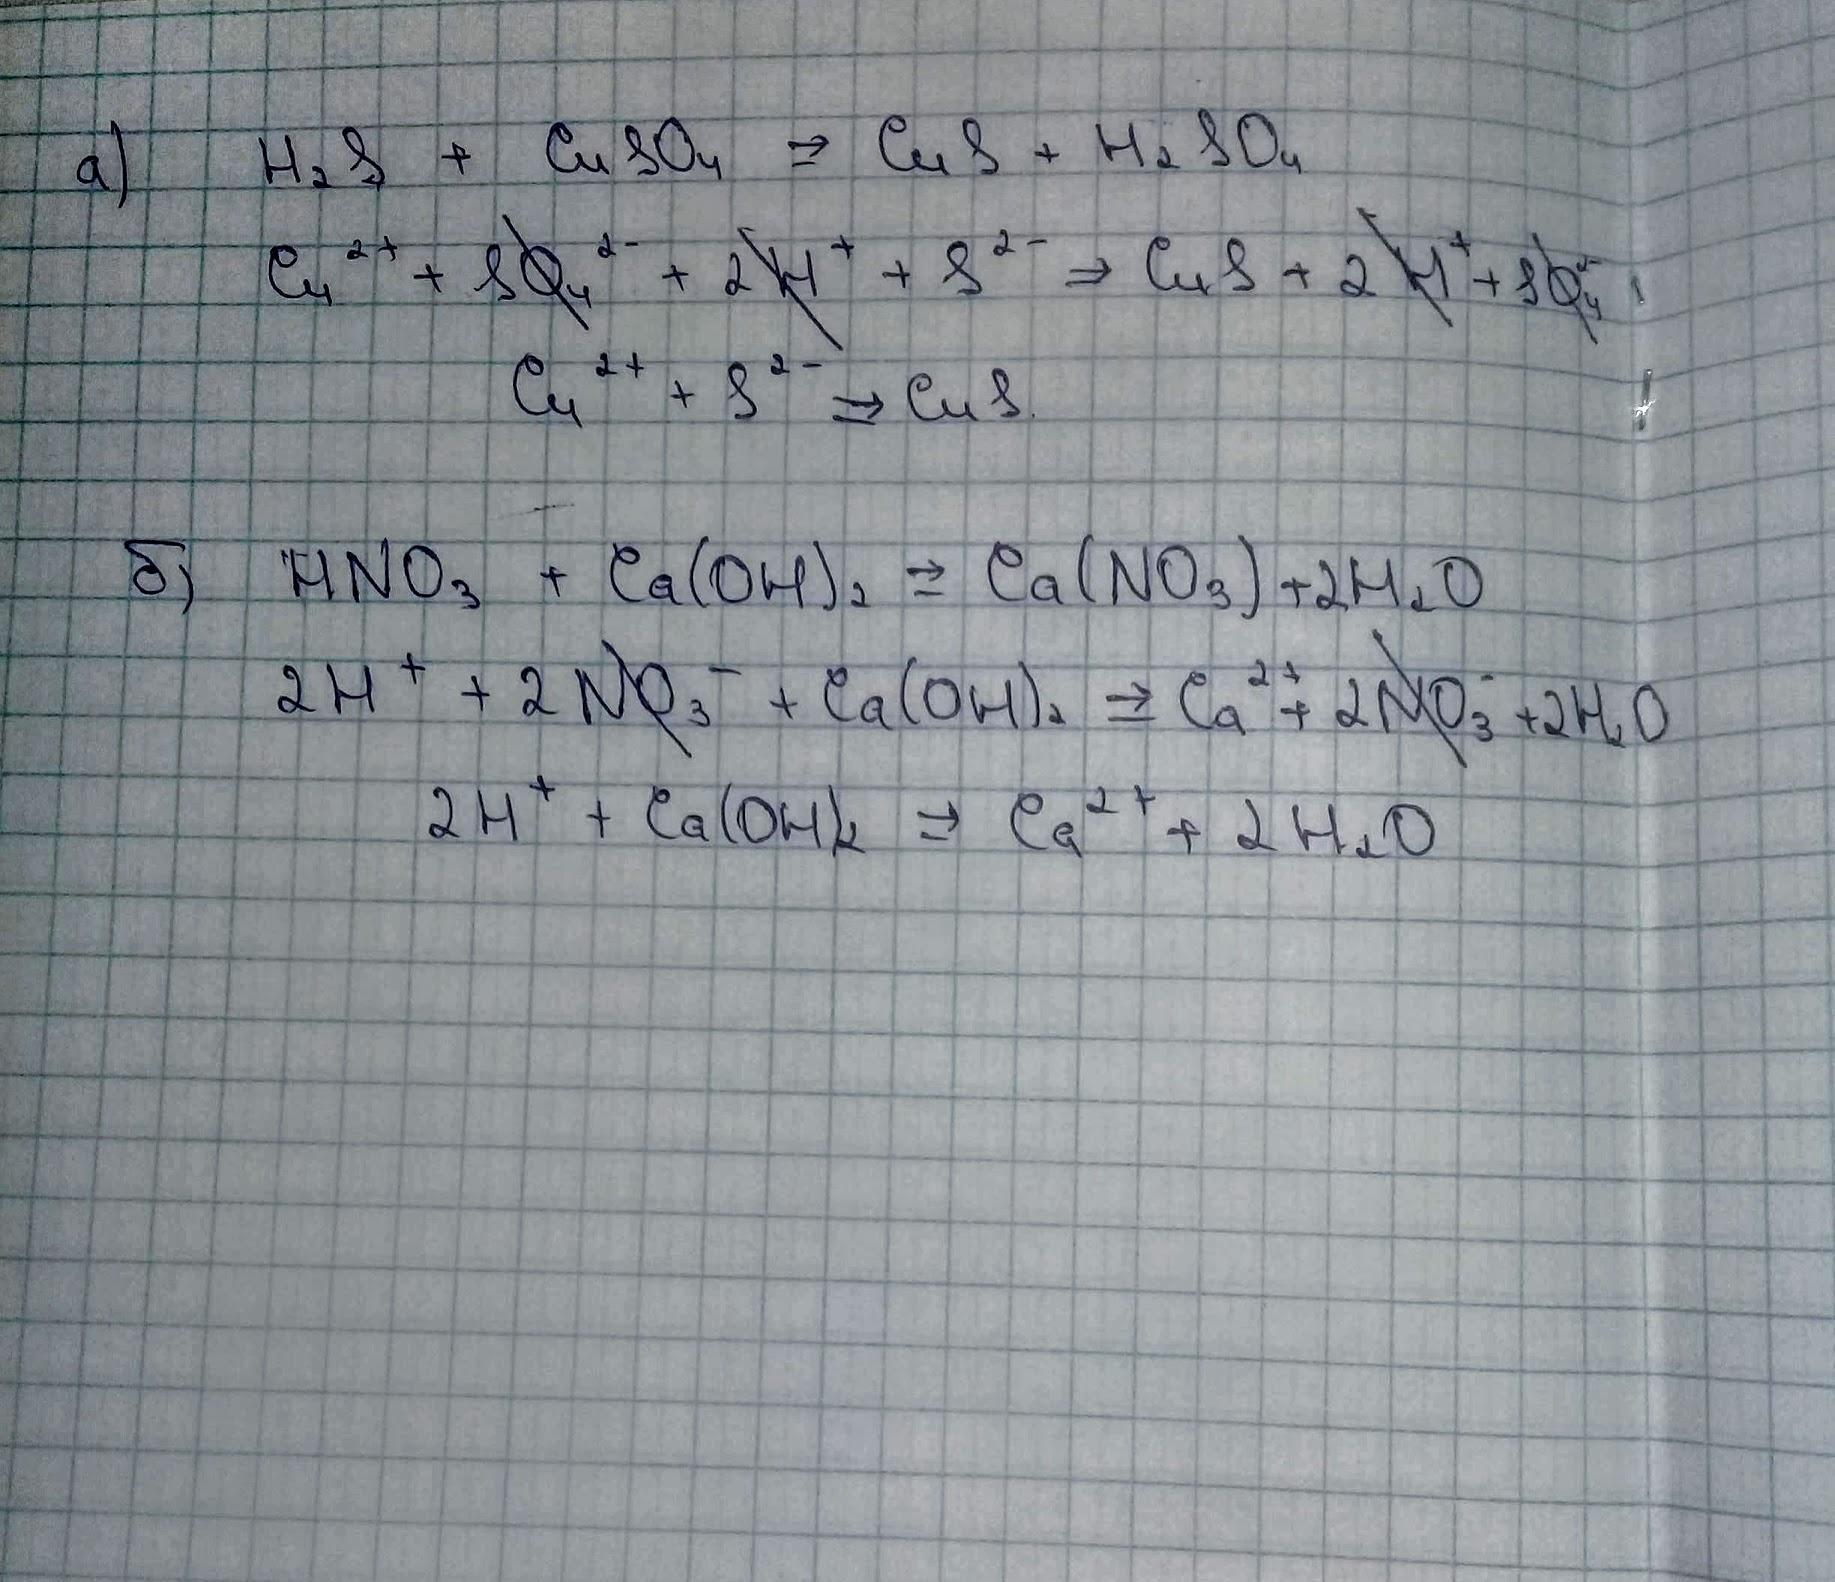 а) H₂S + CuSO₄ ⇒ CuS + H₂SO₄
Cu²⁺ + SO₄²⁻ + 2H⁺ + S²⁻ ⇒ CuS + 2H⁺ + SO₄²⁻
Cu²⁺ + S²⁻ ⇒ CuS.
б) HNO₃ + Ca(OH)₂ ⇒ Ca(NO₃) + 2H₂O
2H⁺ + 2NO₃⁻ + Ca(OH)₂ ⇒ Ca²⁺ + 2NO₃⁻ + 2H₂O
2H⁺ + Ca(OH)₂ ⇒ Ca²⁺ + 2H₂O